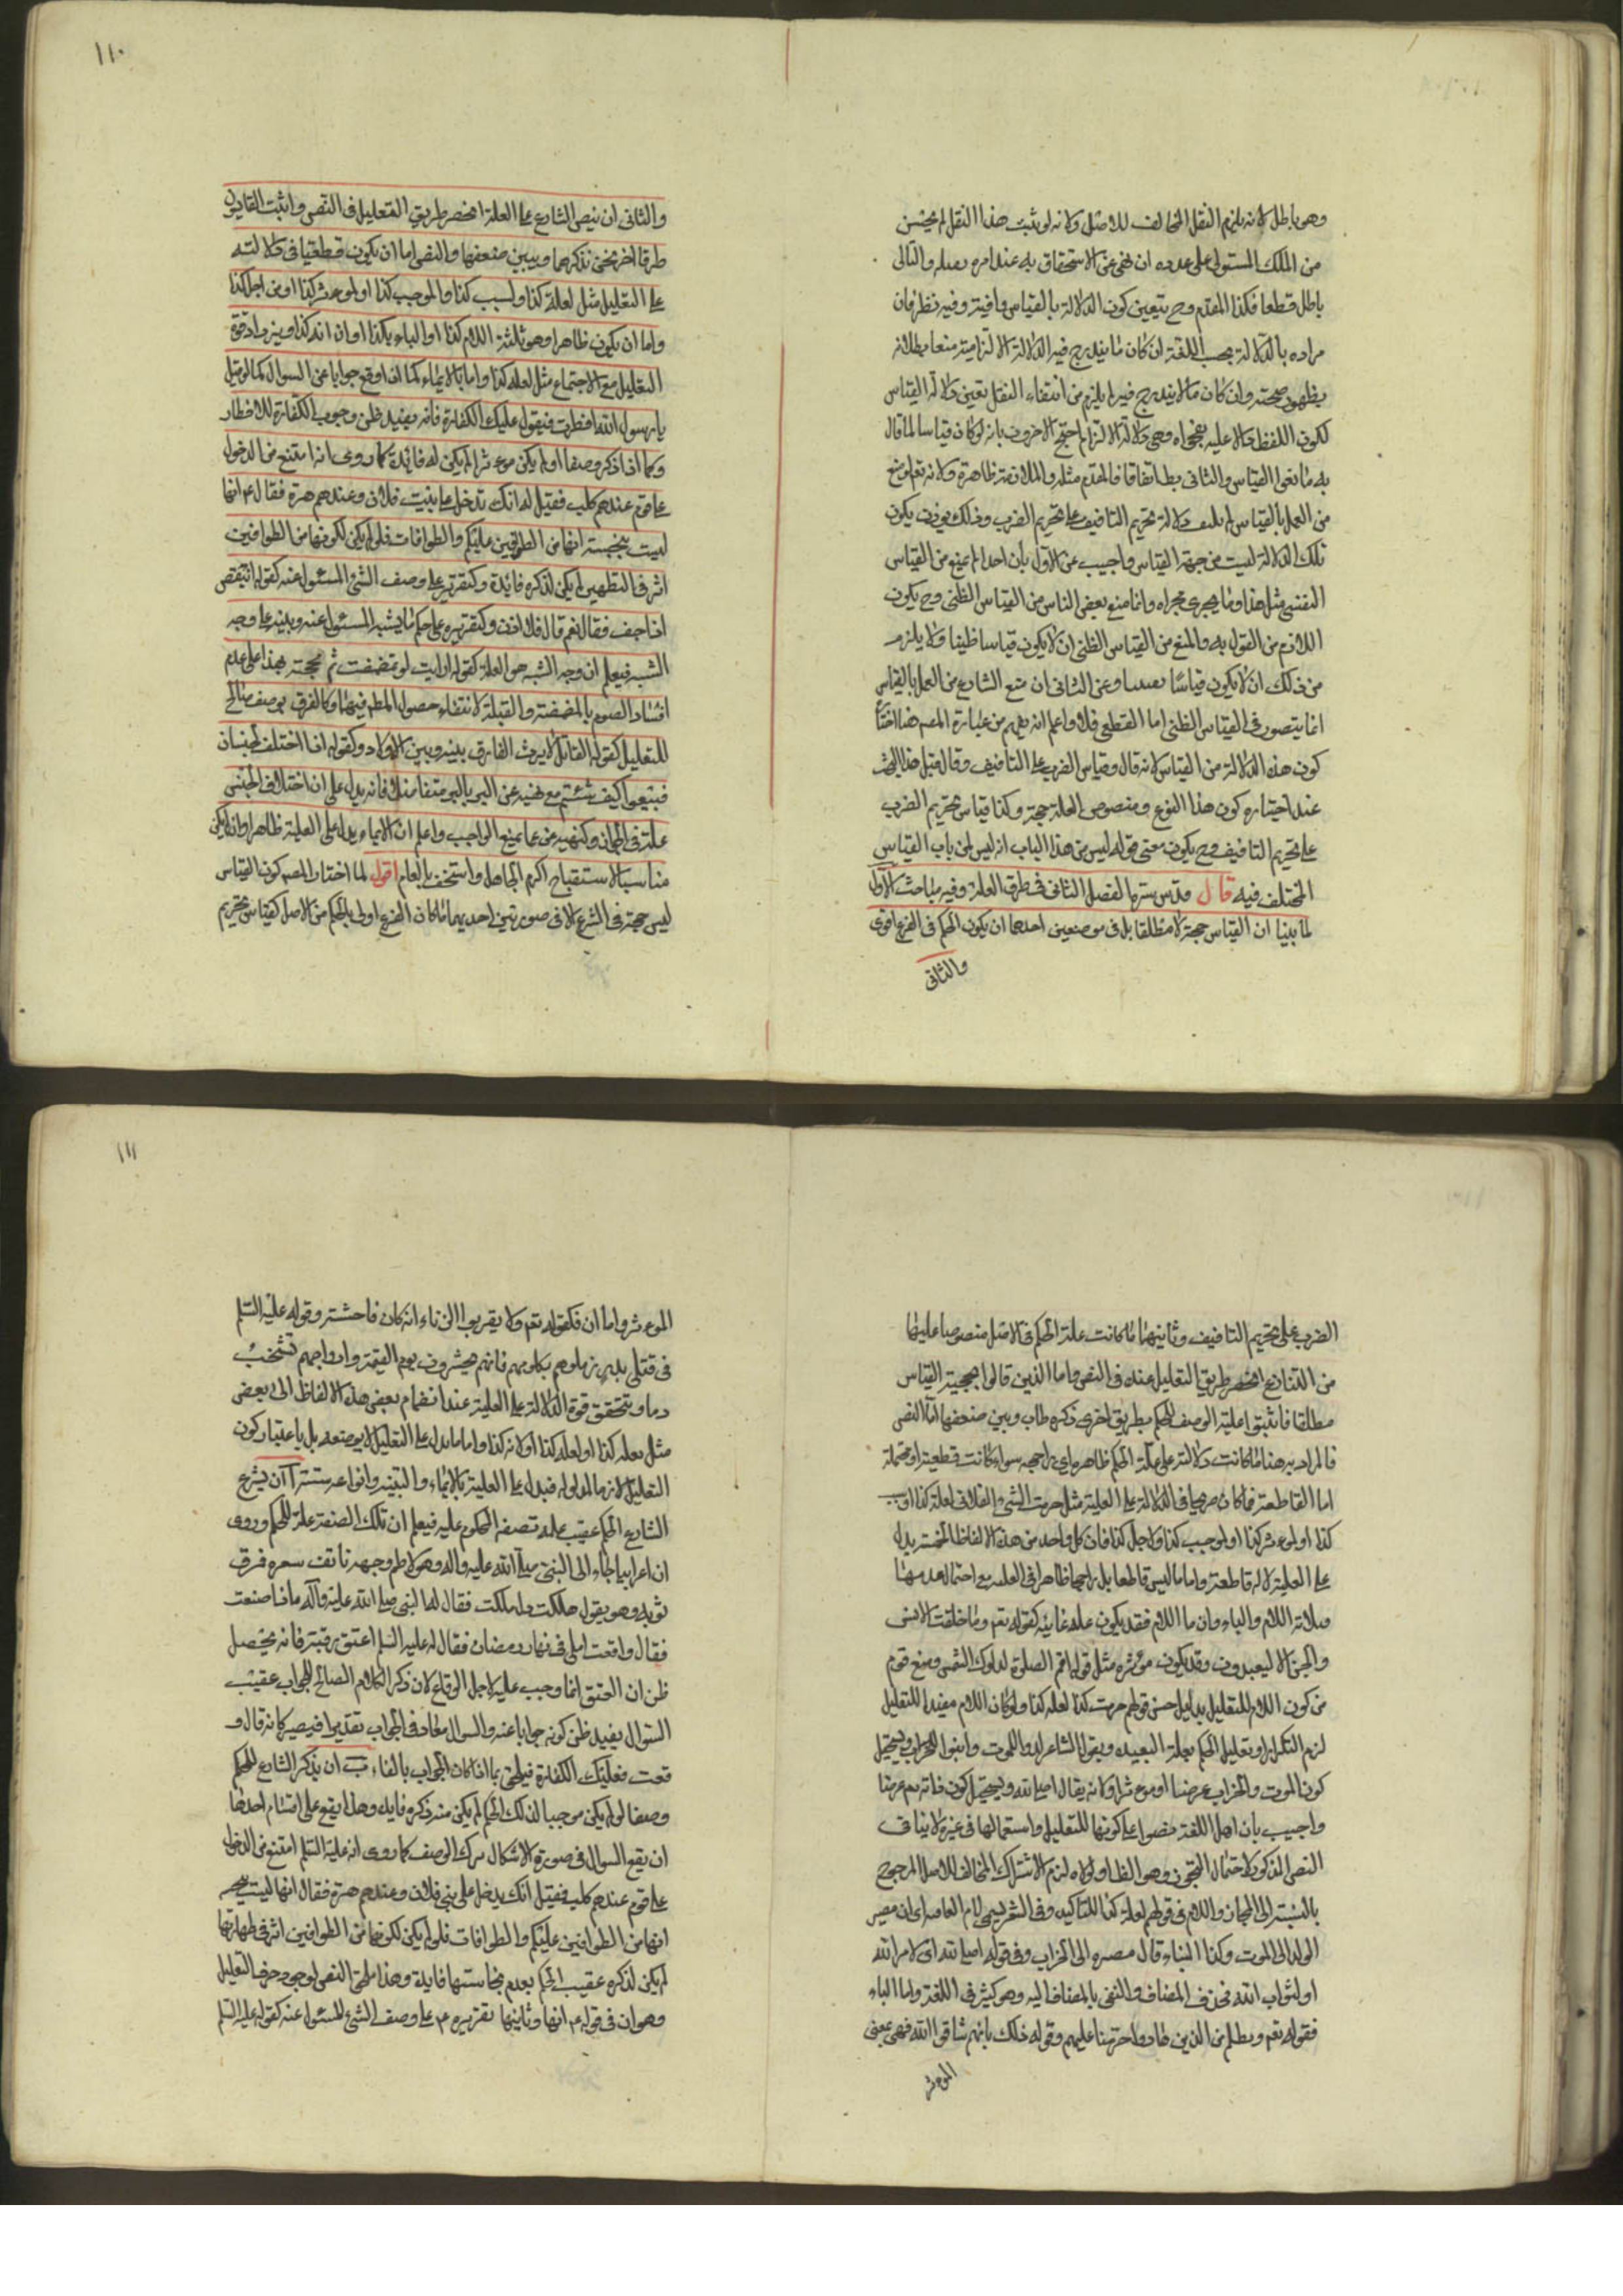 وهو باطل لانه يلزم النقل المخالف للاصل ولانه لو ثبت هذا النقل لم يحسن
من الملك المستولى على عدوه ان ينهى عن الاستحقاق به عند امره بقتله والتالى
باطل قطعا فكذا المقدم وح يتعين كون الدلالة بالقياس وافية وفيه نظر فان
مراده بالدلالة بحسب اللغة ان كان ما يندرج فيه الدلالة الالتزامية منعنا بطلانه
بظهور صحته وان كان ما لا يندرج فيه لم يلزم من انتفاء النقل تعين دلالة القياس
لكون اللفظ دالا عليه بفحواه وهى دلالة الالتزام احتج الاخرون بانه لو كان قياسا لما قال
به مانعوا القياس والثانى بط اتفاقا فالمقدم مثله والملازمة ظاهرة ولانه تعلو منع
من العمل بالقياس لم ينتف دلالة تحريم التافيف على تحريم الضرب وذلك يوذن بكون
تلك الدلالة ليست من جهة القياس واجيب عن الاول بان احدا لم يمنع من القياس
اليقينى مثل هذا وما يجرى مجراه وانما منع بعض الناس من القياس الظنى وح يكون
اللازم من القول به والمنع من القياس الظنى ان لا يكون قياسا ظنيا ولا يلزم
من ذلك ان لا يكون قياسا يقينيا وعن الثانى ان منع الشارع من العمل بالقياس
انما يتصور فى القياس الظنى اما القطعى فلا واعلم انه يفهم من عبارة المصم هنا اختيار
كون هذه الدلالة من القياس لانه قال وقياس الضرب على التافيف وقال قبل هذا البحث
عند اختياره كون هذا النوع ومنصوص العلة حجة وكذا قياس تحريم الضرب
على تحريم التافيف وح يكون معنى قوله ليس من هذا الباب انه ليس من باب القياس
المختلف فيه قال قدس سره الفصل الثانى فى طرق العلة وفيه مباحث الاول
لما بينا ان القياس حجة لا مطلقا بل فى موضعين احدهما ان يكون الحكم فى الفرع اقوى
والثانى
١١٠
والثانى ان ينص الشارع على العلة انحصر طريق التعليل فى النص واثبت القايسون
طرقا اخر نحن نذكرها ونبين ضعفها والنص اما ان يكون قطعيا فى دلالته
على التعليل مثل لعلة كذا ولسبب كذا والموجب كذا او لموثر كذا او من اجل كذا
واما ان يكون ظاهرا وهو ثلثة اللام كذا او الباء بكذا او ان انه كذا ويزداد قوة
التعليل مع الاجتماع مثل لعلة كذا واما بالايماء كما اذا وقع جوابا عن السوال كما لو قيل
يا رسول الله افطرت فيقول عليك الكفارة فانه يفيد ظن وجوب الكفارة للافطار
وكما اذا ذكر وصفا لو لم يكن موثرا لم يكن له فائدة كما روى انه امتنع من الدخول
على قوم عندهم كلب فقيل له انك تدخل على بنيت فلان وعندهم هرة فقال عم انها
ليست بنجسة انها من الطوافين عليكم والطوافات فلو لم يكن لكونها من الطوافين
اثر فى التطهير لم يكن لذكره فائدة وكتقريره على وصف الشى المسئول عنه كقوله اينقص
اذا جف فقال نعم قال فلا اذن وكتقريره على حكم ما يشبه المسئول عنه وبينه على وجه
الشبه فيعلم ان وجه الشبه هو العلة كقوله ارايت لو تمضمضت ثم مججته بهذا على عدم
افساد الصوم بالمضمضة والقبلة لانتفاء حصول المطم فيهما وكالفرق بوصف صالح
للتعليل كقوله القاتل لا يرث الفارق بينه وبين الاولاد وكقوله اذا اختلف الجنسان
فبيعوا كيف شئتم مع نهيه عن البر بالبر متفاضلا فانه يدل على ان اختلاف الجنس
علة فى الجواز وكنهيه عن ما يمنع الواجب واعلم ان الايماء يدل على العلية ظاهرا وان لم يكن
مناسبا لاستقباح اكرم الجاهل واستخف بالعالم اقول لما اختار المصم كون القياس
ليس حجة فى الشرع الا فى صورتين احديهما ما كان الفرع اولى بالحكم من الاصل كقياس تحريم
الضرب على تحريم التافيف وثانيهما ما كانت علة الحكم فى الاصل منصوصا عليها
من الشارع انحصر طريق التعليل عنده فى النص واما الذين قالوا بحجية القياس
مطلقا فاثبتوا علية الوصف للحكم بطريق اخرى ذكرها المصنف طاب وبين ضعفها اما النص
فالمراد به هنا ما كانت دلالته على علة الحكم ظاهرة اى راجحه سواء كانت قطعية او محتملة
اما القاطعة فما كان صريحا فى الدلالة على العلية مثل حرمت الشى الفلانى لعلة كذا او لسبب
كذا او لموثر كذا او لموجب كذا ولاجل كذا فان كل واحد من هذه الالفاظ الخمسة يدل
على العلية دلالة قاطعة واما ما ليس قاطعا بل راجحا ظاهرا فى العلية مع احتمال عدمها
فثلاثة اللام والباء وان اما اللام فقد يكون علة غائية كقوله تعم وما خلقت الانس
والجن الا ليعبدون وقد يكون موثره مثل قوله اقم الصلوة لدلوك الشمس ومنع قوم
من كون اللام للتعليل بدليل حسن قولهم حرمت كذا لعلة كذا ولو كان اللام مفيدا للتعليل
لزم التكرار او تعليل الحكم بعلة البعيده وبقول الشاعر لدوا للموت وابنوا للخراب ويستحيل
كون الموت والخراب غرضا او موثرا ولانه يقال اصلى لله ويستحيل كون ذاته تعم غرضا
واجيب بان اهل اللغة نصوا على كونها للتعليل واستعمالها فى غيره لا ينافى
النص المذكور لاحتمال التجوز وهو الظا والا لزم الاشتراك المخالف للاصل المرجوح
بالنسبة الى المجاز واللام فى قولهم لعلة كذا للتاكيد وفى الشعر يسمى لام العاقبة اى ان مصير
الولد الى الموت وكذا البناء قال مصيره الى الخراب وفى قوله اصلى لله اى لامر الله
او لثواب الله فحذف المضاف واكتفى بالمضاف اليه وهو كثير فى اللغة واما الباء
فقوله تعم وبظلم من الذين هادوا حرمنا عليهم وقوله ذلك بانهم شاقوا الله فهى بمعنى
الموثر
١١١
الموثر واما ان فكقوله تعم ولا تقربوا الزناء انه كان فاحشة وقوله عليه السلم
فى قتلى بدر زملوهم بكلومهم فانهم يحشرون يوم القيمة واوداجهم تشخب
دما ويتحقق قوة الدلالة على العلية عند انضمام بعض هذه الالفاظ الى بعض
مثل بعلة كذا او لعلة كذا او لانه كذا واما ما يدل على التعليل لا بوضعه بل باعتبار كون
التعليل لازما لمدلوله فيدل على العلية بالايماء والتنبيه وانواعه ستة آ ان يشرع
الشارع الحكم عقيب علمه بصفة المحكوم عليه فيعلم ان تلك الصفة علة للحكم وروى
ان اعرابيا جاء الى النبى صلى الله عليه واله وهو لاطم وجهه ناتف شعره فرق
ثوبه وهو يقول هلكت واهلكت فقال له النبى صلى الله عليه وآله ماذا صنعت
فقال واقعت اهلى فى نهار رمضان فقال له عليه السلم اعتق رقبة فانه يحصل
ظن ان العتق انما وجب عليه لاجل الوقاع لان ذكر الكلام الصالح للجواب عقيب
السوال يفيد ظن كونه جوابا عنه والسوال معاد فى الجواب تقديرا فيصير كانه قال وا
قعت فعليك الكفارة فيلحق بما اذا كان الجواب بالفاء ب ان يذكر الشارع للحكم
وصفا لو لم يكن موجبا لذلك الحكم لم يكن منه ذكره فايدة وهذا يقع على اقسام احدها
ان يقع السوال فى صورة الاشكال بذكر الوصف كما روى انه عليه السلم امتنع من الدخول
على قوم عندهم كلب فقيل انك تدخل على بنى فلان وعندهم هرة فقال انها ليست بنجسه
انها من الطوافين عليكم والطوافات فلو لم يكن لكونها من الطوافين اثر فى طهارتها
لم يكن لذكره عقيب الحكم بعدم نجاستها فايدة وهذا ملحق النص لوجود حرف التعليل
وهو ان فى قوله عم انها وثانيها تقريره عم على وصف الشئ المسئول عنه كقوله عليه السلم